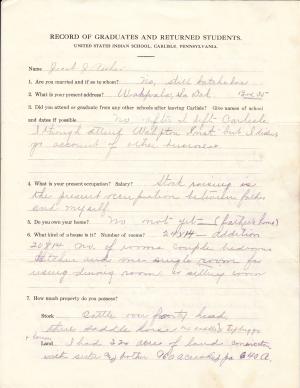 RECORD OF GRADUATES AND RETURNED STUDENTS.
UNITED STATES INDIAN SCHOOL, CARLISLE, PENNSYLVANIA.
Name
1. Are you married and if so to whom? No, still
2. What is your present address? Wakpala, So Dak Box 35
3. Did you attend or graduate from any other schools after leaving Carlisle? Give names of school
and dates if possible. No after I left Carlisle
I though but I didn't
go account of other business
4. What is your present occupation? Salary? Stock raising is
the present occupation between father
and myself
5. Do you own your home? No not yet (father's home)
6. What kind of a house is it? Number of rooms? 24x14 addition
20x14 No. of rooms couple bedrooms
kitchen and one single room for
using dining room or sitting room
7. How much property do you possess?
Stock Cattle over forty head
three saddle horse
Land I had 320 acres of land
with sister brother acres 640 A.